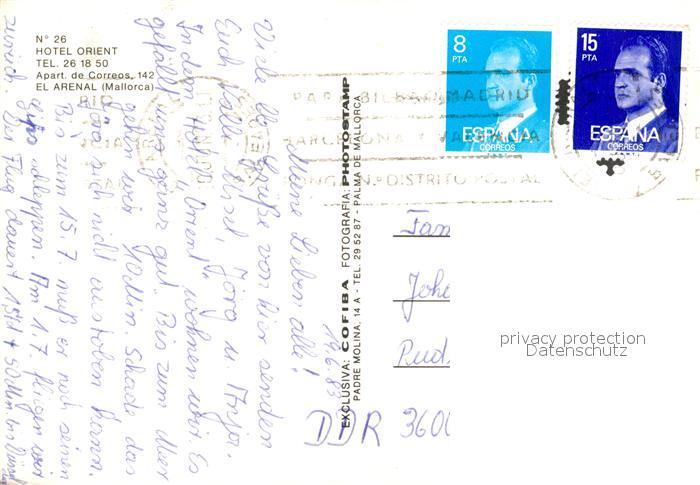 N° 26
HOTEL ORIENT
TEL. 26 18 50
Apart. de Correos, 142
EL ARENAL (Mallorca)
8
PTA
ESPAÑA
CORREOS
15
PTA
ESPAÑA
CORREOS
PARA BILBAO MADRID
BARCELONA Y VALENCIA
PONGAN Nº DISTRITO POSTAL
EXCLUSIVA: COFIBA FOTOGRAFIA: PHOTOSTAMP
PADRE MOLINA, 14 A - TEL. 29 52 87 - PALMA DE MALLORCA
19.6.83
Meine Lieben alle!
Viele lb. Grüße von hier senden
Euch alle Ursel, Jörg u. Anja.
In dem Hotel "Orient" wohnen wir. Es
gefällt uns ganz gut. Bis zum Meer
gehen wir 10 Min. Schade das
Jörg sich nicht austoben kann.
Bis zum 15.7. muß er noch seinen
Gips schleppen. Am 1.7 fliegen wir
zurück. Der Flug dauert 1 Std + 50 Min bis
Fam
Joh
Rud.
DDR 3600
privacy protection
Datenschutz